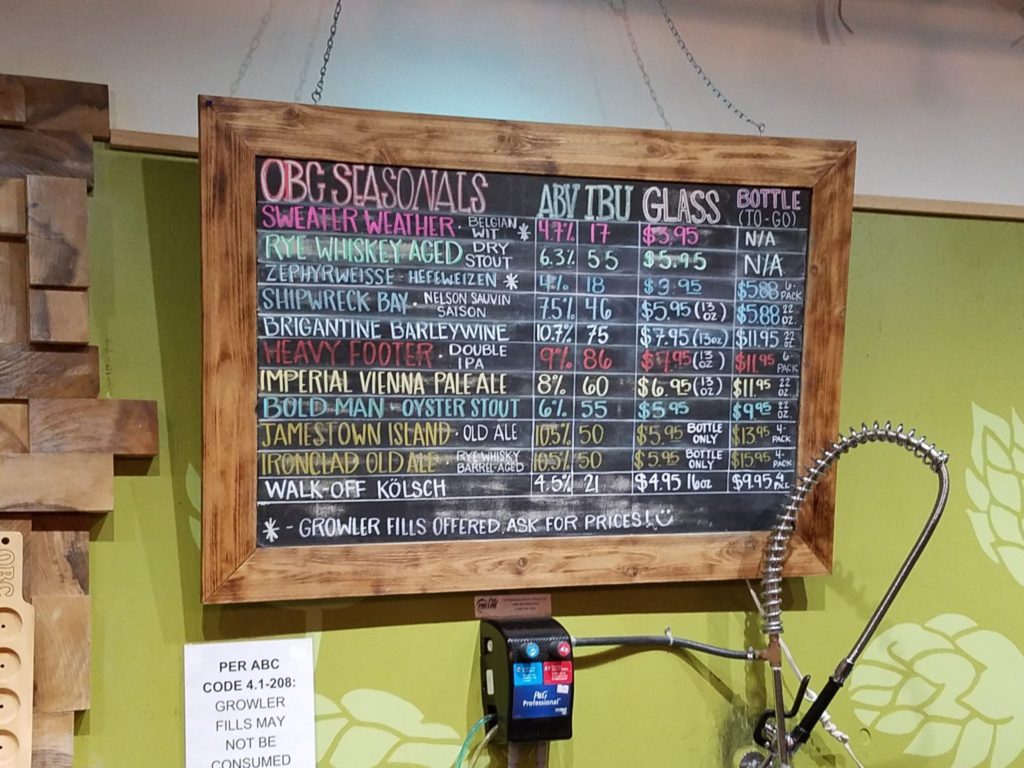 OBG SEASONALS ABV IBU GLASS BOTTLE (TO-GO)
SWEATER WEATHER · BELGIAN WIT * 4.7% 17 $3.95 N/A
RYE WHISKEY AGED · DRY STOUT 6.3% 55 $5.95 N/A
ZEPHYRWEISSE · HEFEWEIZEN * 4% 18 $3.95 $5.88 6-PACK
SHIPWRECK BAY · NELSON SAUVIN SAISON 7.5% 46 $5.95 (13 OZ) $5.88 22 OZ.
BRIGANTINE BARLEYWINE 10.7% 75 $7.95 (13oz) $11.95 22 OZ.
HEAVY FOOTER · DOUBLE IPA 9% 86 $7.95 (13 OZ) $11.95 6-PACK
IMPERIAL VIENNA PALE ALE 8% 60 $6.95 (13 OZ) $11.95 22 OZ.
BOLD MAN · OYSTER STOUT 6% 55 $5.95 $9.95 22 OZ.
JAMESTOWN ISLAND · OLD ALE 10.5% 50 $5.95 BOTTLE ONLY $13.95 4-PACK
IRONCLAD OLD ALE · RYE WHISKY BARREL-AGED 10.5% 50 $5.95 BOTTLE ONLY $15.95 4-PACK
WALK-OFF KÖLSCH 4.5% 21 $4.95 16oz $9.95 4 PACK
* - GROWLER FILLS OFFERED, ASK FOR PRICES!
OBG
P&G
Professional
PER ABC
CODE 4.1-208:
GROWLER
FILLS MAY
NOT BE
CONSUMED